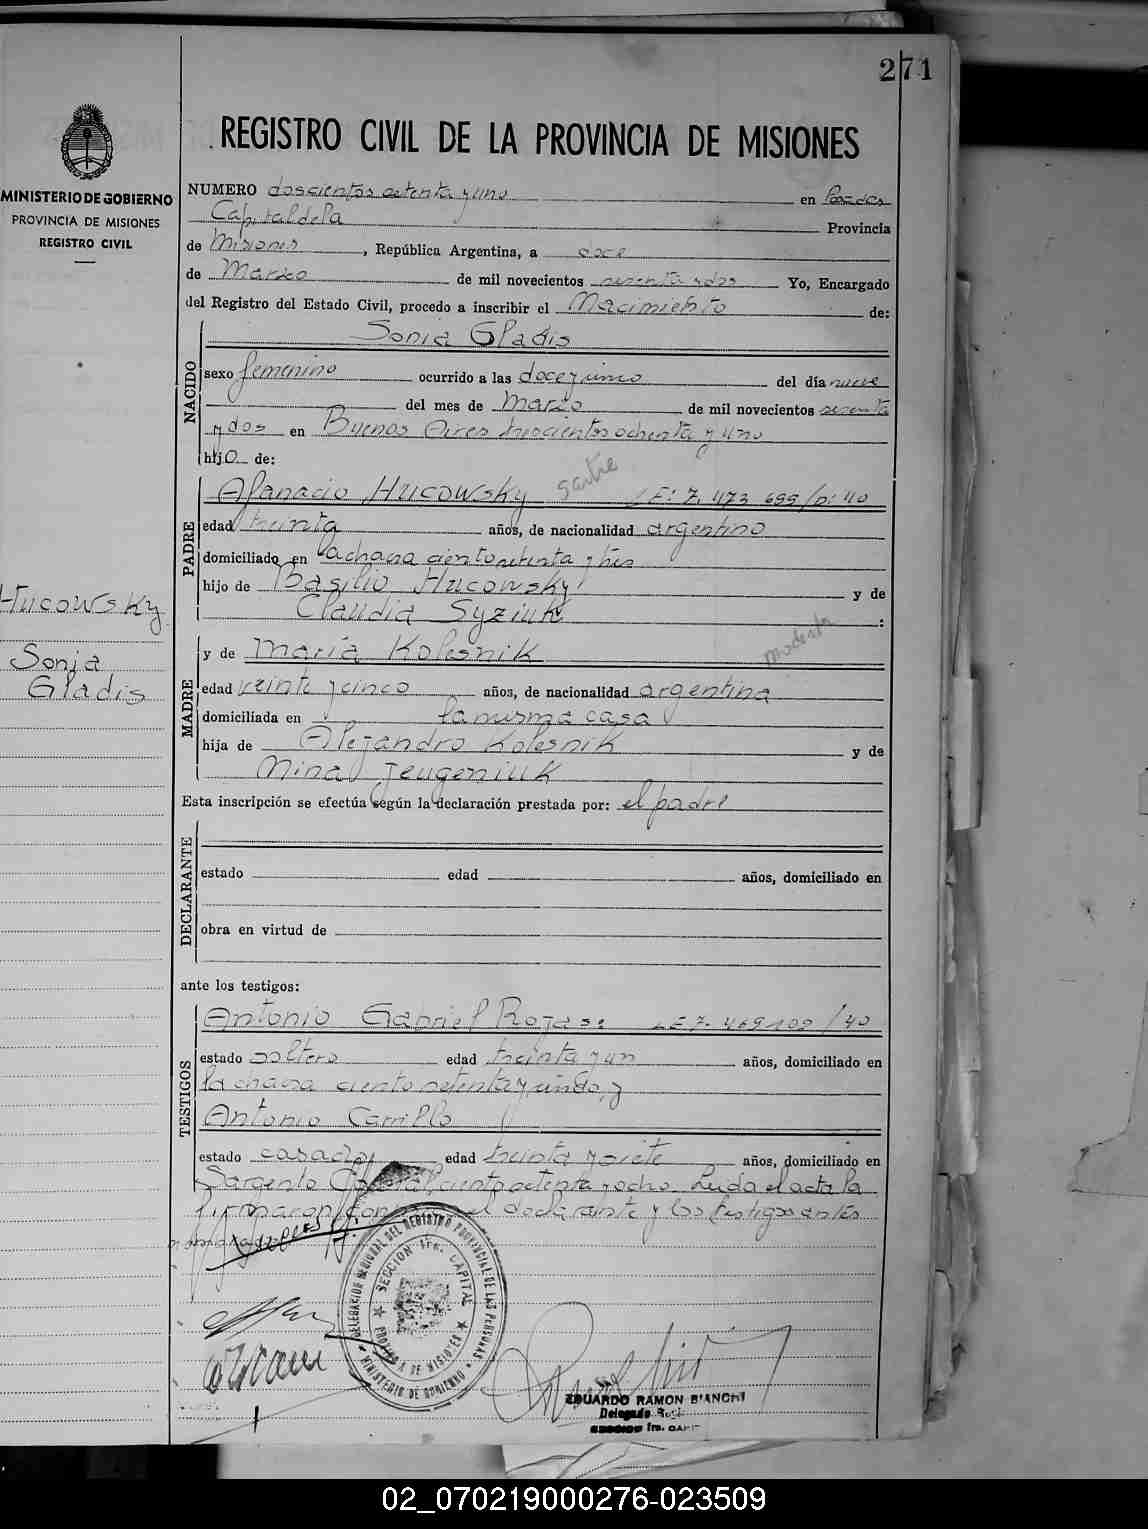 271
REGISTRO CIVIL DE LA PROVINCIA DE MISIONES
MINISTERIO DE GOBIERNO
PROVINCIA DE MISIONES
REGISTRO CIVIL
NUMERO doscientos setenta y uno en Posadas
Capital de la Provincia
de Misiones, República Argentina, a doce
de Marzo de mil novecientos sesenta y dos Yo, Encargado
del Registro del Estado Civil, procedo a inscribir el Nacimiento de:
Sonia Gladis
NACIDO
sexo femenino ocurrido a las doce y cinco del día nueve
del mes de Marzo de mil novecientos sesenta
y dos en Buenos Aires trescientos ochenta y uno
hijo de:
PADRE
Afanacio Hucowsky sastre LE: 7.473.655/D: 40
edad treinta años, de nacionalidad argentino
domiciliado en la chacra ciento setenta y tres
hijo de Basilio Hucowsky y de
Claudia Syziuk :
Hucowsky
Sonia
Gladis
MADRE
y de María Kolesnik modista
edad veinte y cinco años, de nacionalidad argentina
domiciliada en la misma casa
hija de Alejandro Kolesnik y de
Nina Jeugeniuk
Esta inscripción se efectúa según la declaración prestada por: el padre
DECLARANTE
estado edad años, domiciliado en
obra en virtud de
ante los testigos:
TESTIGOS
Antonio Gabriel Rojas: LE 7.469.102/40
estado soltero edad treinta y un años, domiciliado en
la chacra ciento setenta y
Antonio Carrillo
estado casado edad treinta y siete años, domiciliado en
Sargento Cabral ciento setenta y ocho. Leida el acta la
firmaron el declarante y los testigos antes
nombrados
DELEGACION REGIONAL DEL REGISTRO PROVINCIAL DE LAS PERSONAS
SECCION 1ra. CAPITAL
PROVINCIA DE MISIONES
MINISTERIO DE GOBIERNO
EDUARDO RAMON BIANCHI
Delegado
SECCION 1ra. CAPIT
02_070219000276-023509